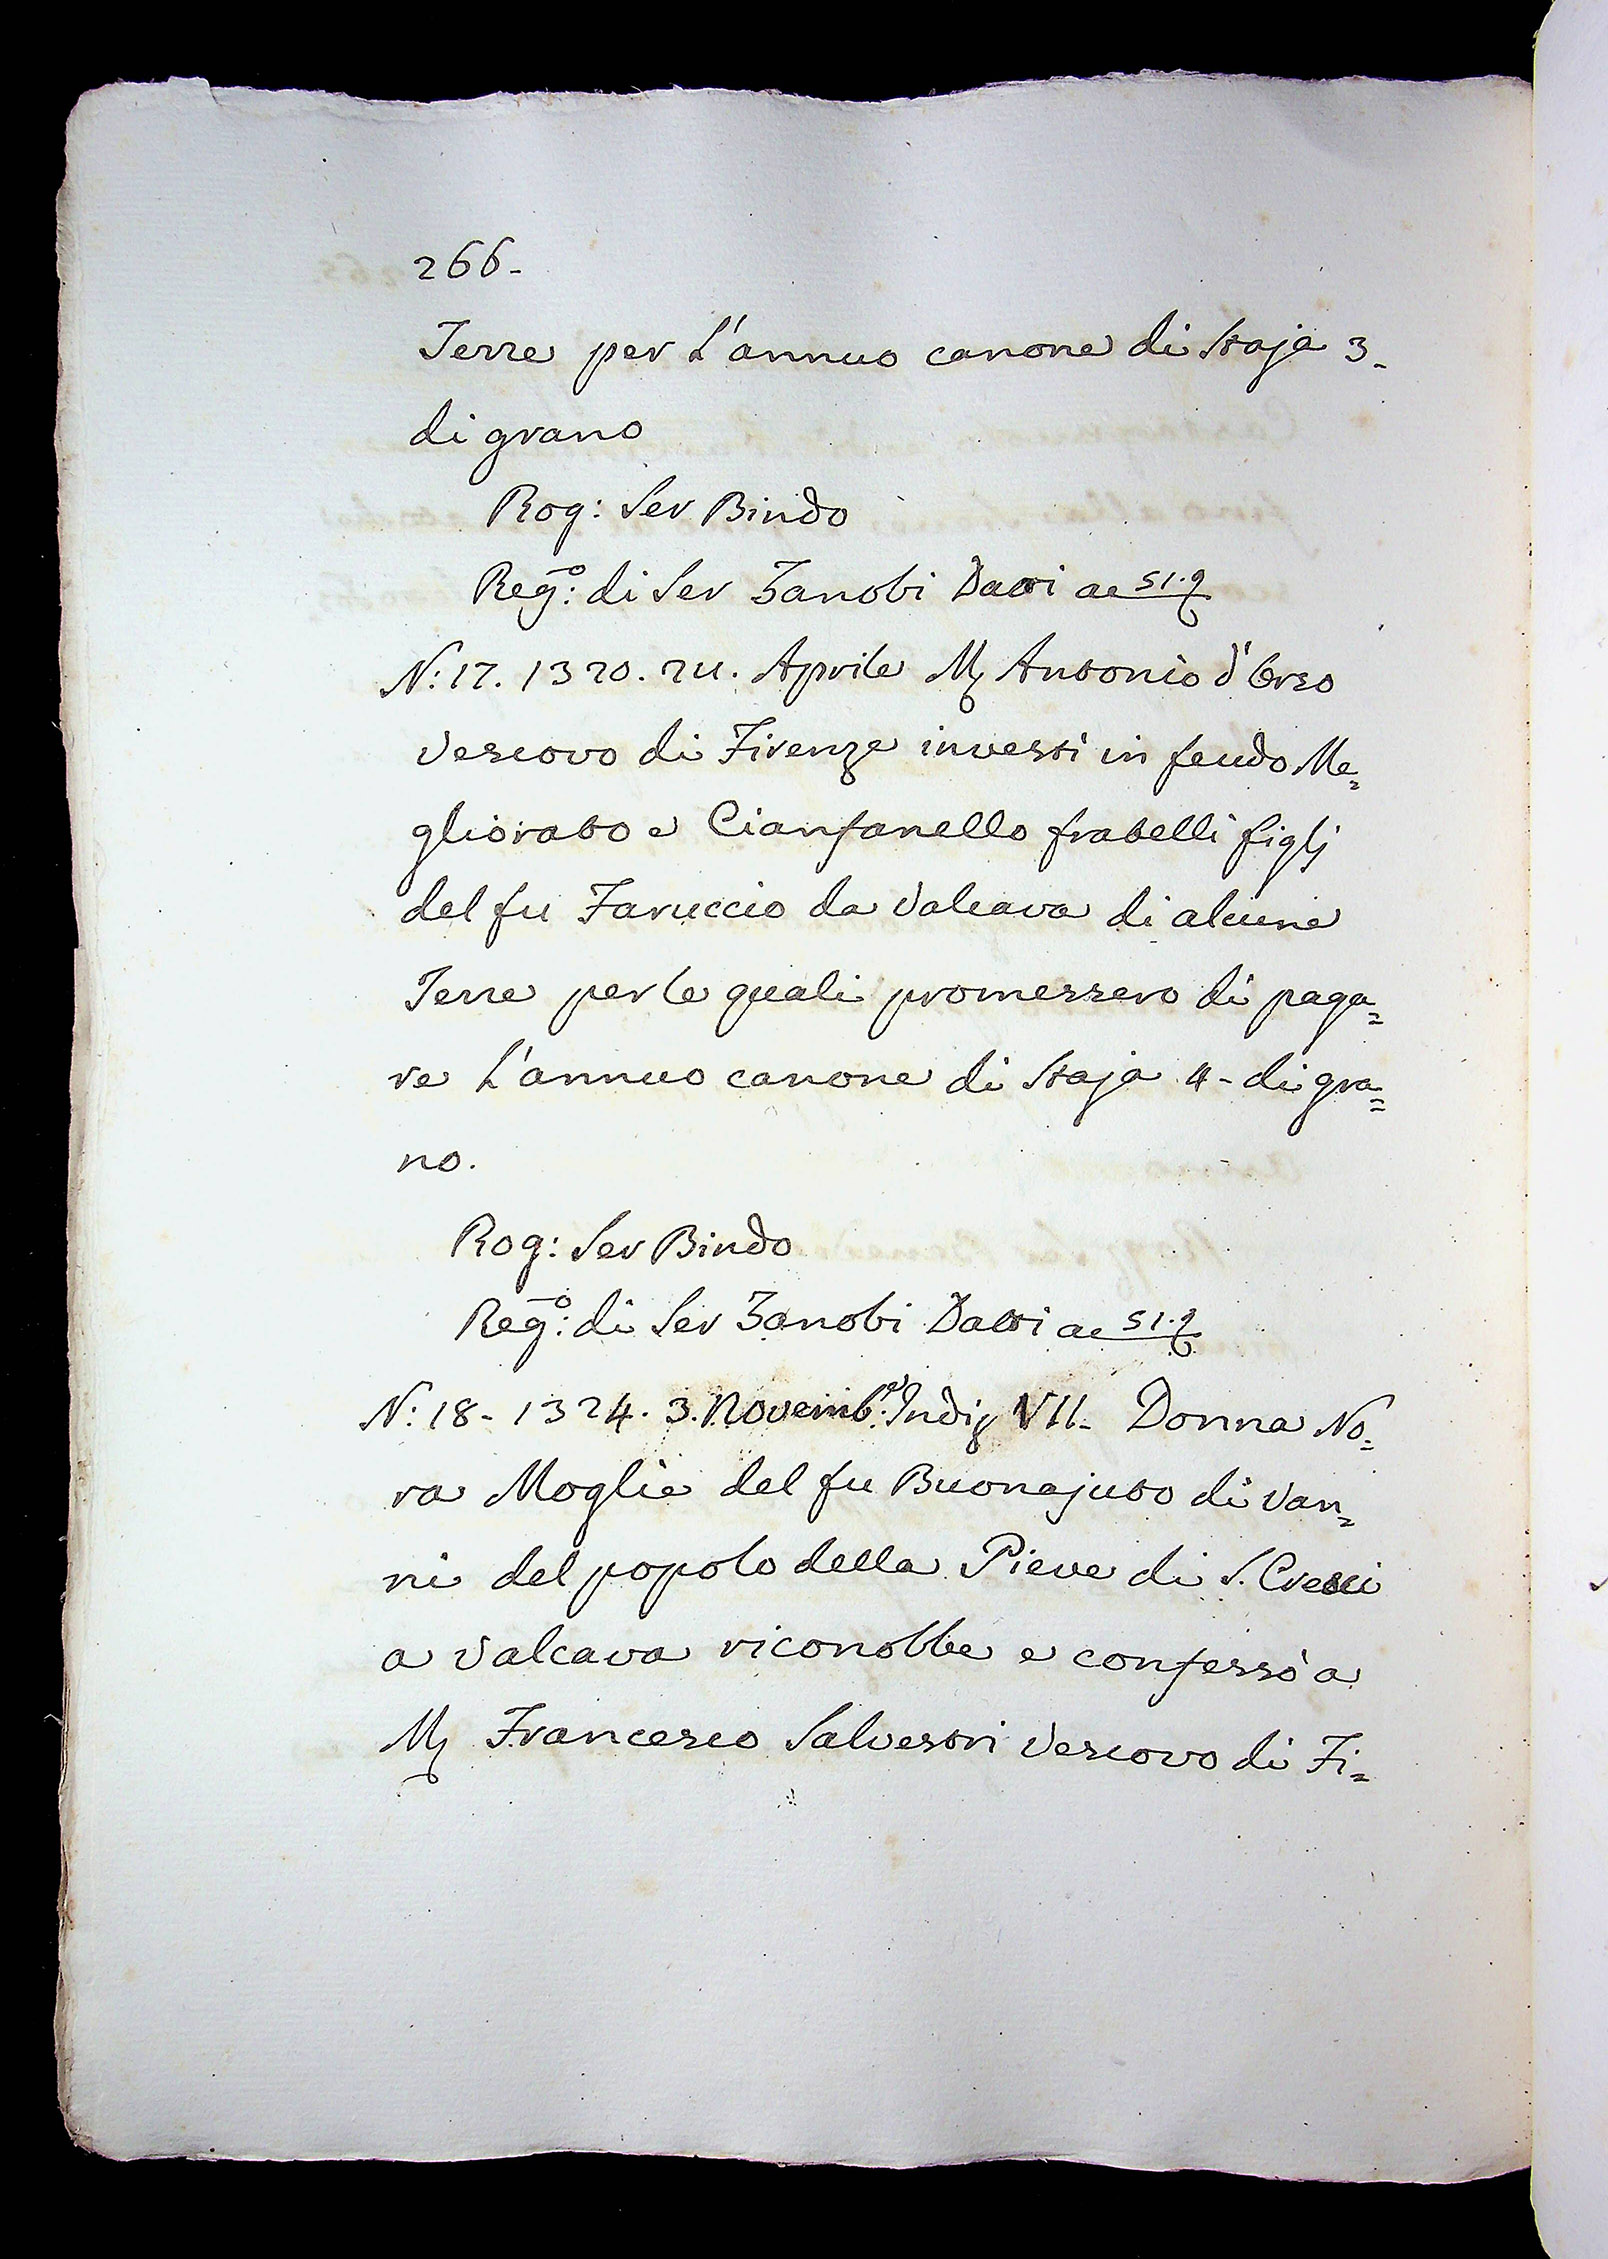 266-
Terre per L'annuo canone di Staja 3-
di grano
Rog: Ser Bindo
Reg.o: di Ser Zanobi Datti ae 51.9
N: 17. 1320. 24. Aprile M Antonio d'Orso
Vescovo di Firenze investì in feudo Me=
gliorato e Cianfanello fratelli figlj
del fu Taruccio da Valcava di alcune
Terre per le quali promessero di paga=
re L'annuo canone di Staja 4- di gra=
no.
Rog: Ser Bindo
Reg.o: di Ser Zanobi Datti ae 51.9
N: 18- 1324. 3. Novemb.e: Indiz VII- Donna No=
ra Moglie del fu Buonajuto di Van=
ni del popolo della Pieve di S. Cresci
a Valcava riconobbe e confessò a
M Francesco Salvestri Vescovo di Fi=